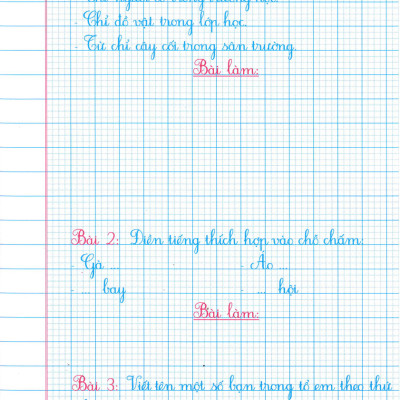 trong trường học.
- Chỉ đồ vật trong lớp học.
- Từ chỉ cây cối trong sân trường.
Bài làm:
Bài 2: Điền tiếng thích hợp vào chỗ chấm:
- Gà ... - Áo ...
- ... bay - ... hội
Bài làm:
Bài 3: Viết tên một số bạn trong tổ em theo thứ